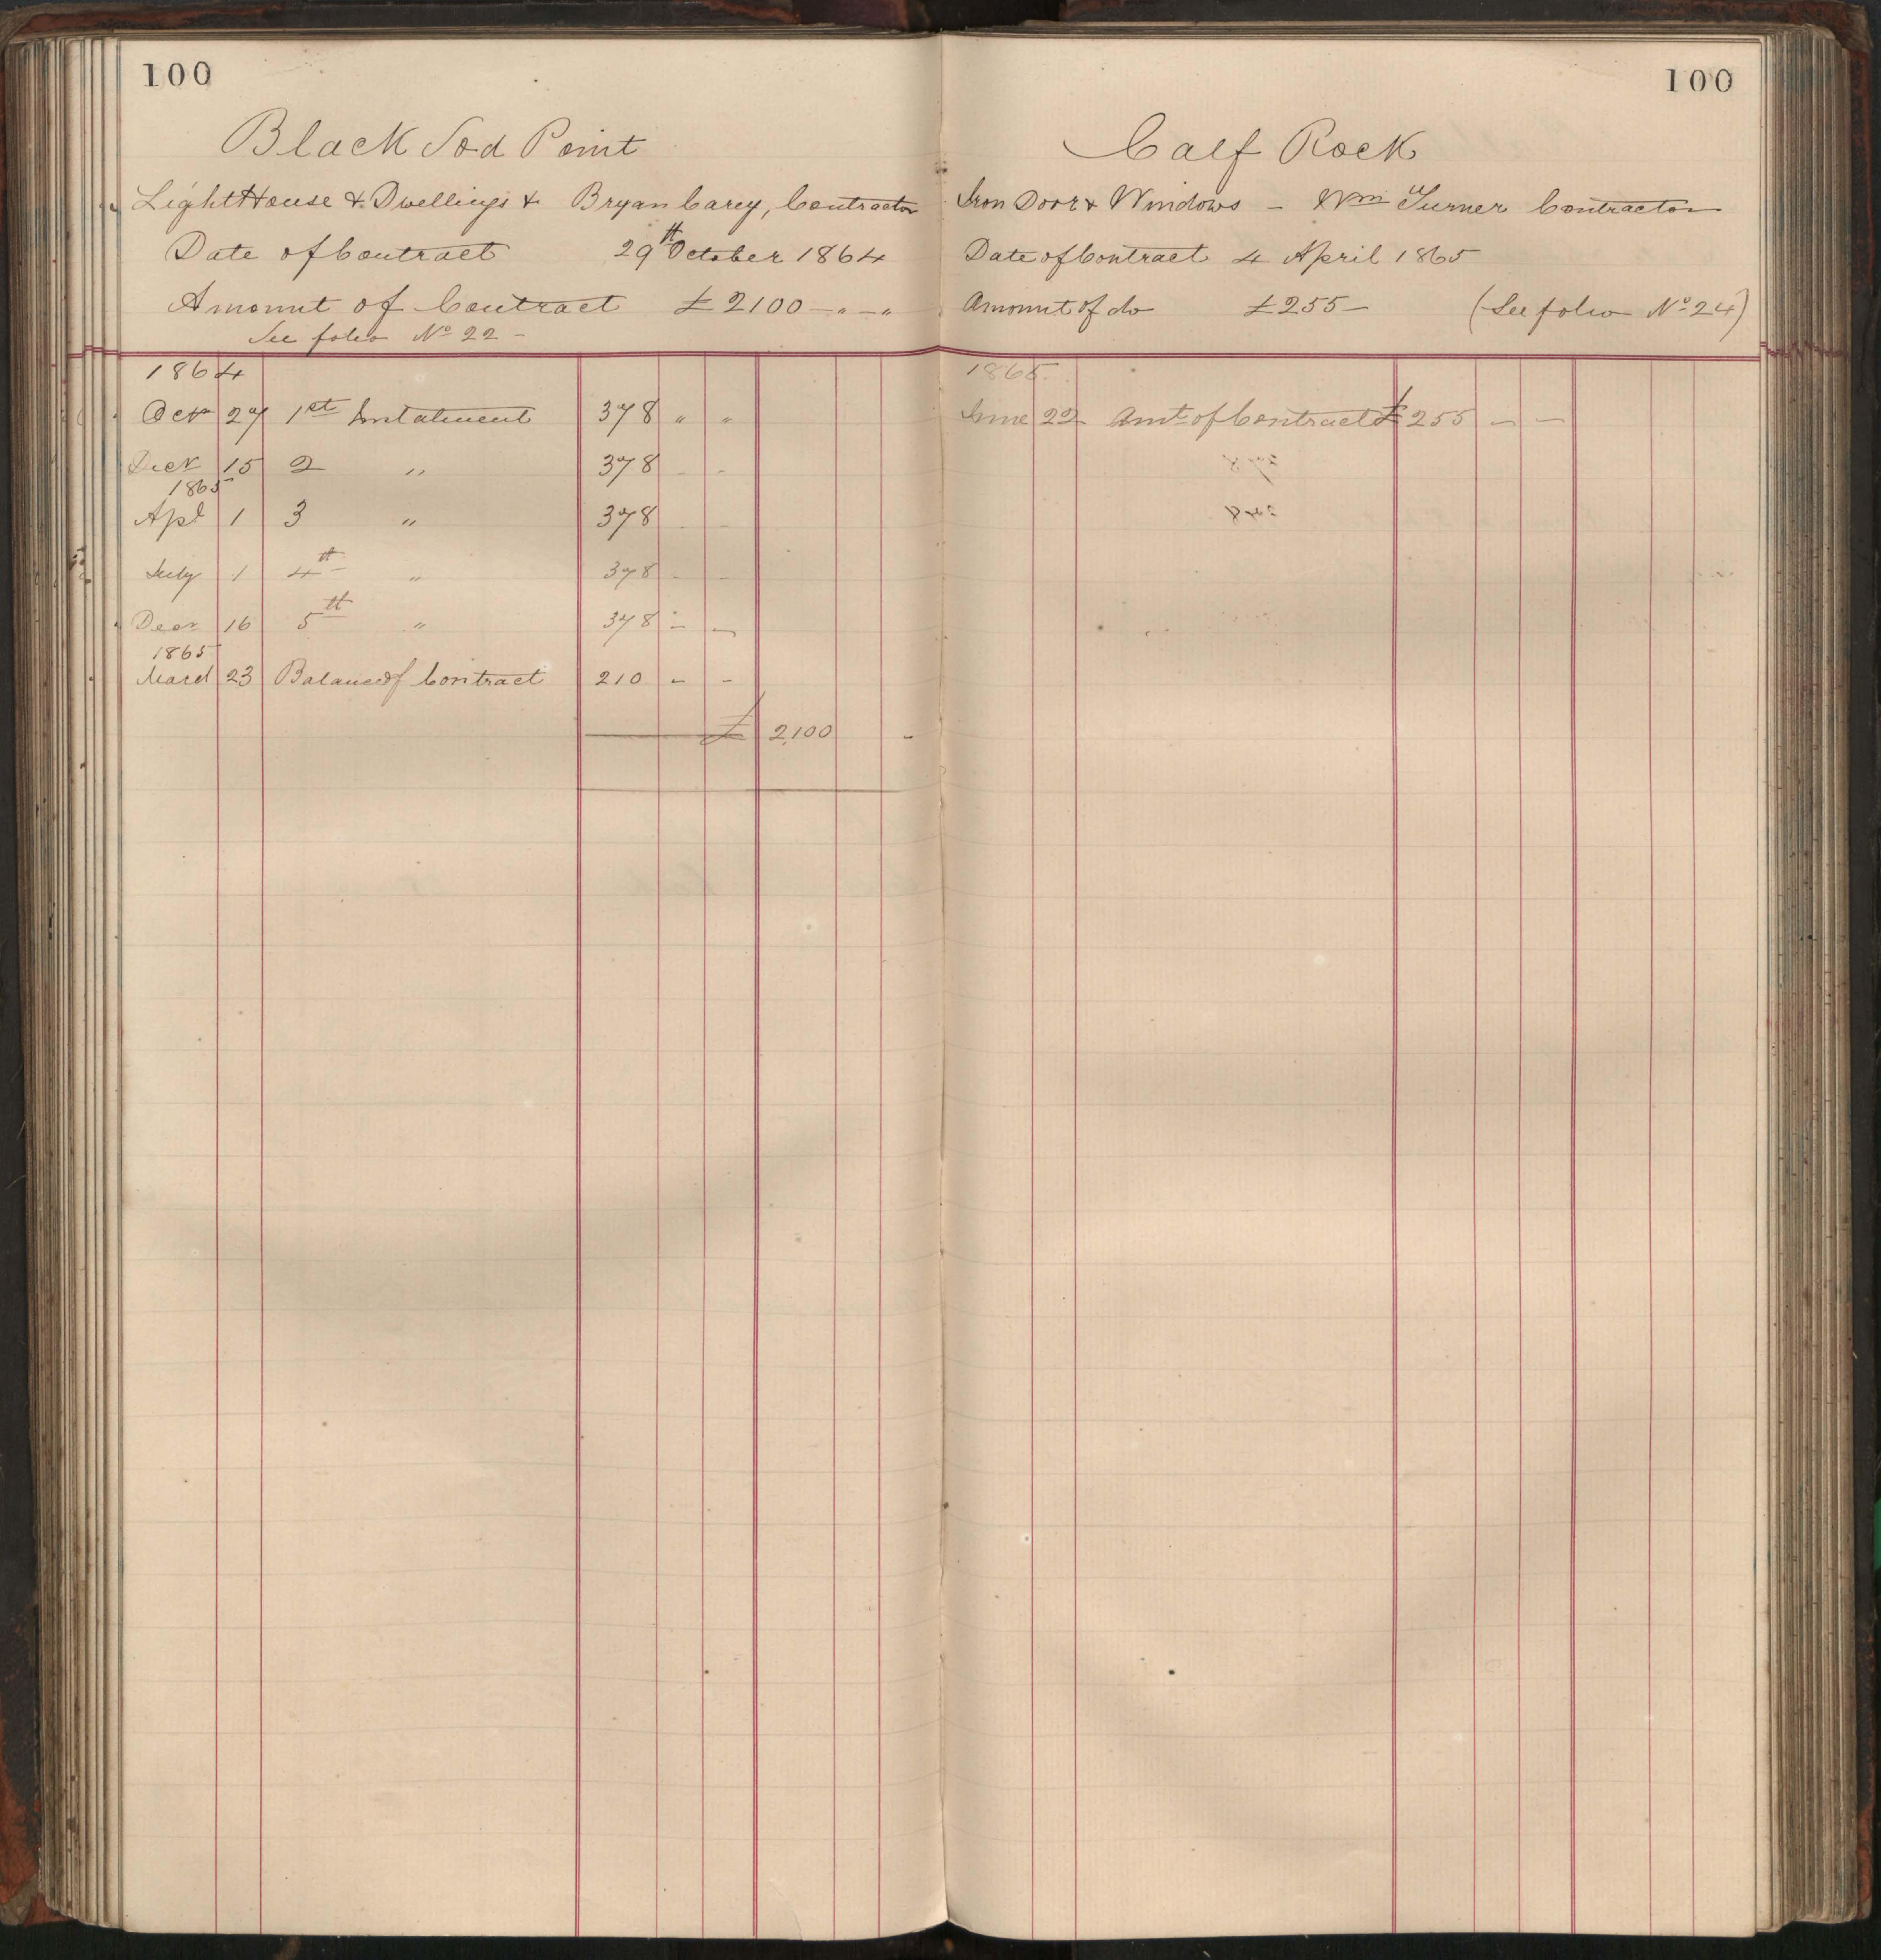 100
Black Sod Point
LightHouse & Dwellings & Bryan Carey, Contractor
Date of Contract 29th October 1864
Amount of Contract £2100 - " - "
See folio No 22 -
1864
Octr 27 1st Instalment 378 " "
Decr 15 2 " 378 - -
1865
Apl 1 3 " 378 - -
July 1 4th " 378 - -
Decr 16 5th " 378 - -
1865
March 23 Balance of Contract 210 - -
£ 2,100 -
100
Calf Rock
Iron Door & Windows - Wm Turner Contractor
Date of Contract 4 April 1865
Amount of do £255 - (See folio No 24)
1865
June 22 Amt of Contract £ 255 - -